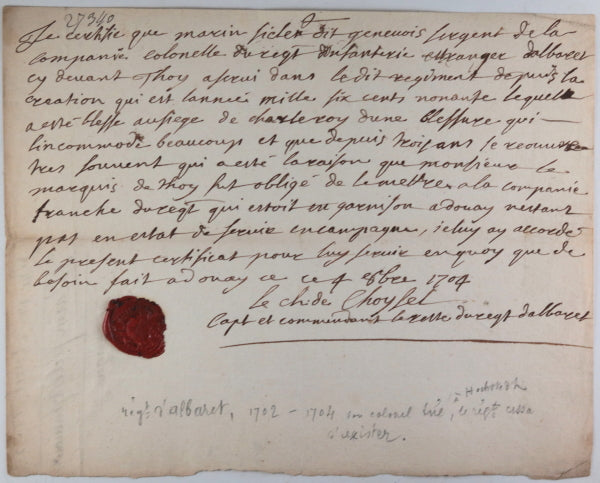 27340
Je certifie que marin sicler dit genevois sergent de la
companie colonelle du regt dinfanterie etranger dalbaret
cy devant Thoy a servi dans le dit regiment depuis la
creation qui est lannee mille six cents nonante lequelle
a esté blesse au siege de charleroy dune blessure qui
lincommode beaucoups et que depuis trois ans se reouvre
tres souvent qui a esté la raison que monsieur le
marquis de Thoy fut obligé de le mettre a la companie
franche du regt qui estoit en garnison a douay nestant
pas en estat de servir en campagne, je luy ay accordé
le present certificat pour luy servir en quoy que de
besoin fait a douay ce ce 4 8bre 1704
le ch. de Choysel
Capt et commendant le reste du regt dalbaret
à Hochstedt
régt d'albaret, 1702 - 1704 son colonel tué, le régt cessa
d'exister.